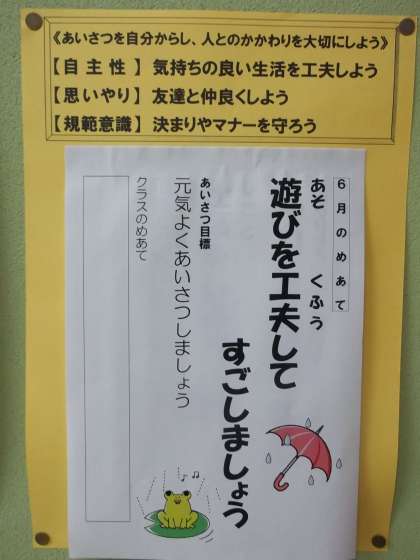 《あいさつを自分からし、人とのかかわりを大切にしよう》
【自主性】 気持ちの良い生活を工夫しよう
【思いやり】 友達と仲良くしよう
【規範意識】 決まりやマナーを守ろう
6月のめあて
あそ くふう
遊びを工夫して
すごしましょう
あいさつ目標
元気よくあいさつしましょう
クラスのめあて